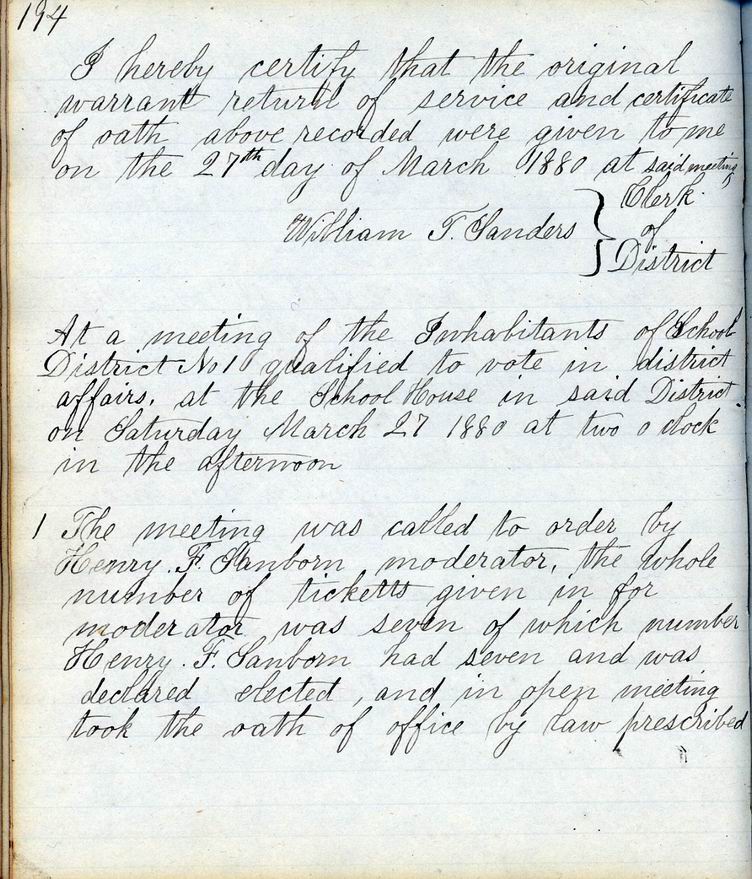 194
I hereby certify that the original
warrant return of service and certificate
of oath above recorded were given to me
on the 27th day of March 1880 at said meeting
William T. Sanders } Clerk
of
District
At a meeting of the Inhabitants of School
District No 10 qualified to vote in district
affairs, at the School House in said District
on Saturday March 27 1880 at two o clock
in the afternoon
1 The meeting was called to order by
Henry. F. Sanborn moderator, the whole
number of ticketts given in for
moderator was seven of which number
Henry. F. Sanborn had seven and was
declared elected, and in open meeting
took the oath of office by law prescribed